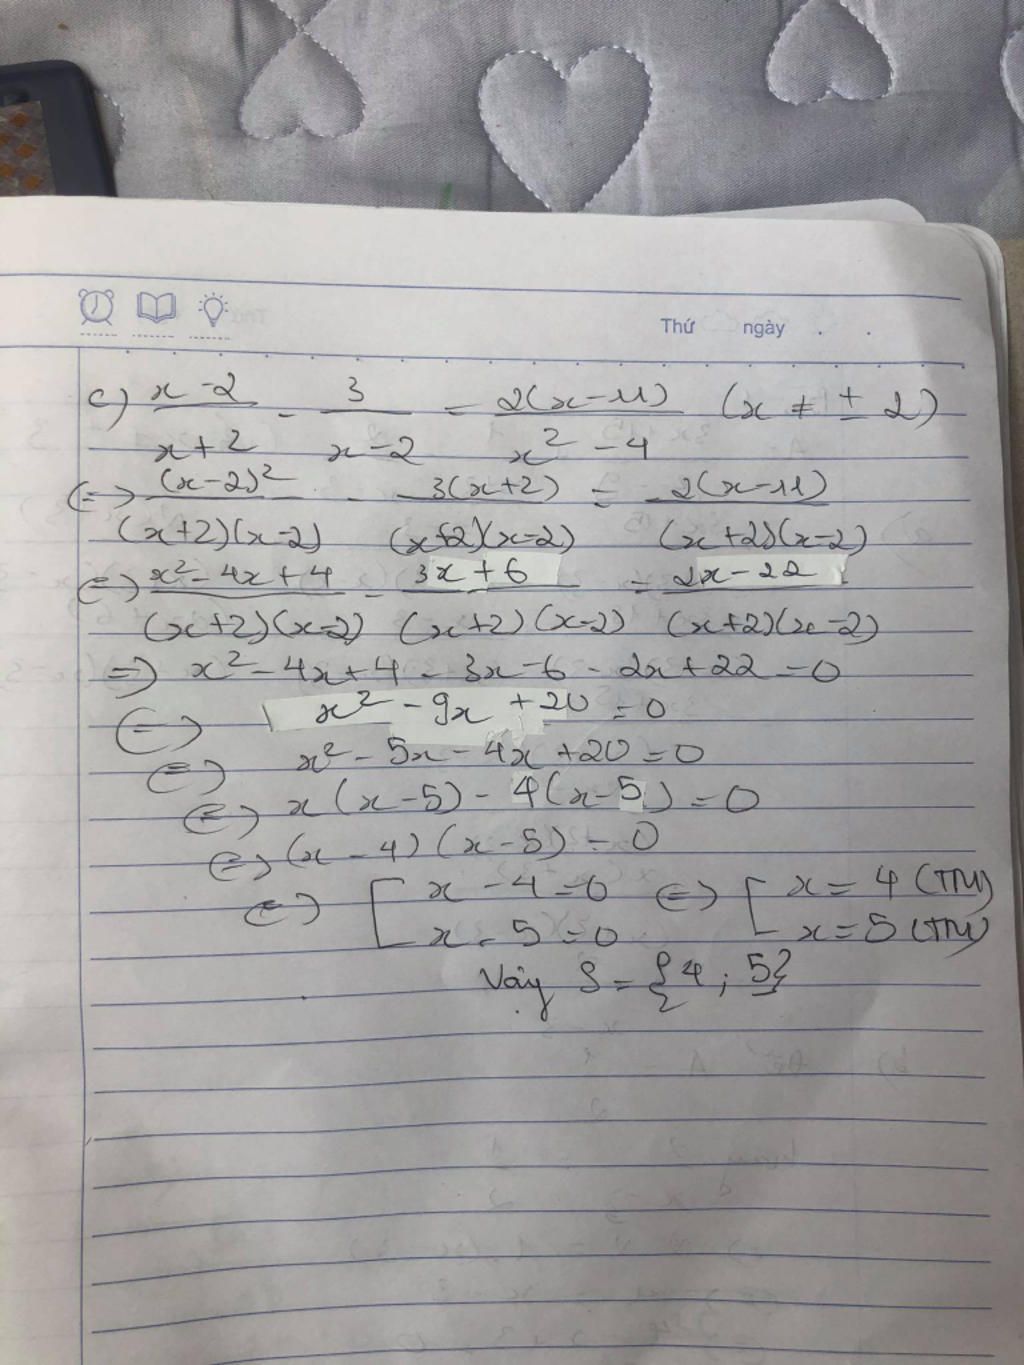 Thứ ngày . .
c) \frac{x-2}{x+2} - \frac{3}{x-2} = \frac{2(x-11)}{x^2-4} (x ≠ ± 2)
<=> \frac{(x-2)^2}{(x+2)(x-2)} - \frac{3(x+2)}{(x+2)(x-2)} = \frac{2(x-11)}{(x+2)(x-2)}
<=> \frac{x^2-4x+4}{(x+2)(x-2)} - \frac{3x+6}{(x+2)(x-2)} = \frac{2x-22}{(x+2)(x-2)}
=> x^2 - 4x + 4 - 3x - 6 - 2x + 22 = 0
<=> x^2 - 9x + 20 = 0
<=> x^2 - 5x - 4x + 20 = 0
<=> x(x-5) - 4(x-5) = 0
<=> (x-4)(x-5) = 0
<=> [ x - 4 = 0 <=> [ x = 4 (TM)
x - 5 = 0 x = 5 (TM)
Vậy S = {4 ; 5}